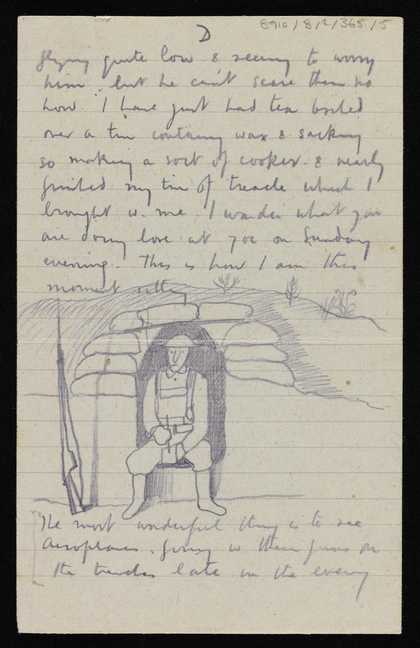 8910/8/2/365/5
D
flying quite low & seems to worry
him, but he can't scare them no
how. I have just had tea boiled
over a tin containing wax & sacking
so making a sort of cooker & nearly
finished my tin of treacle which I
brought w. me. I wonder what you
are doing love at 7oc on Sunday
evening. This is how I am this
moment
The most wonderful thing is to see
Aeroplanes. firing w their guns on
the trenches late in the evening